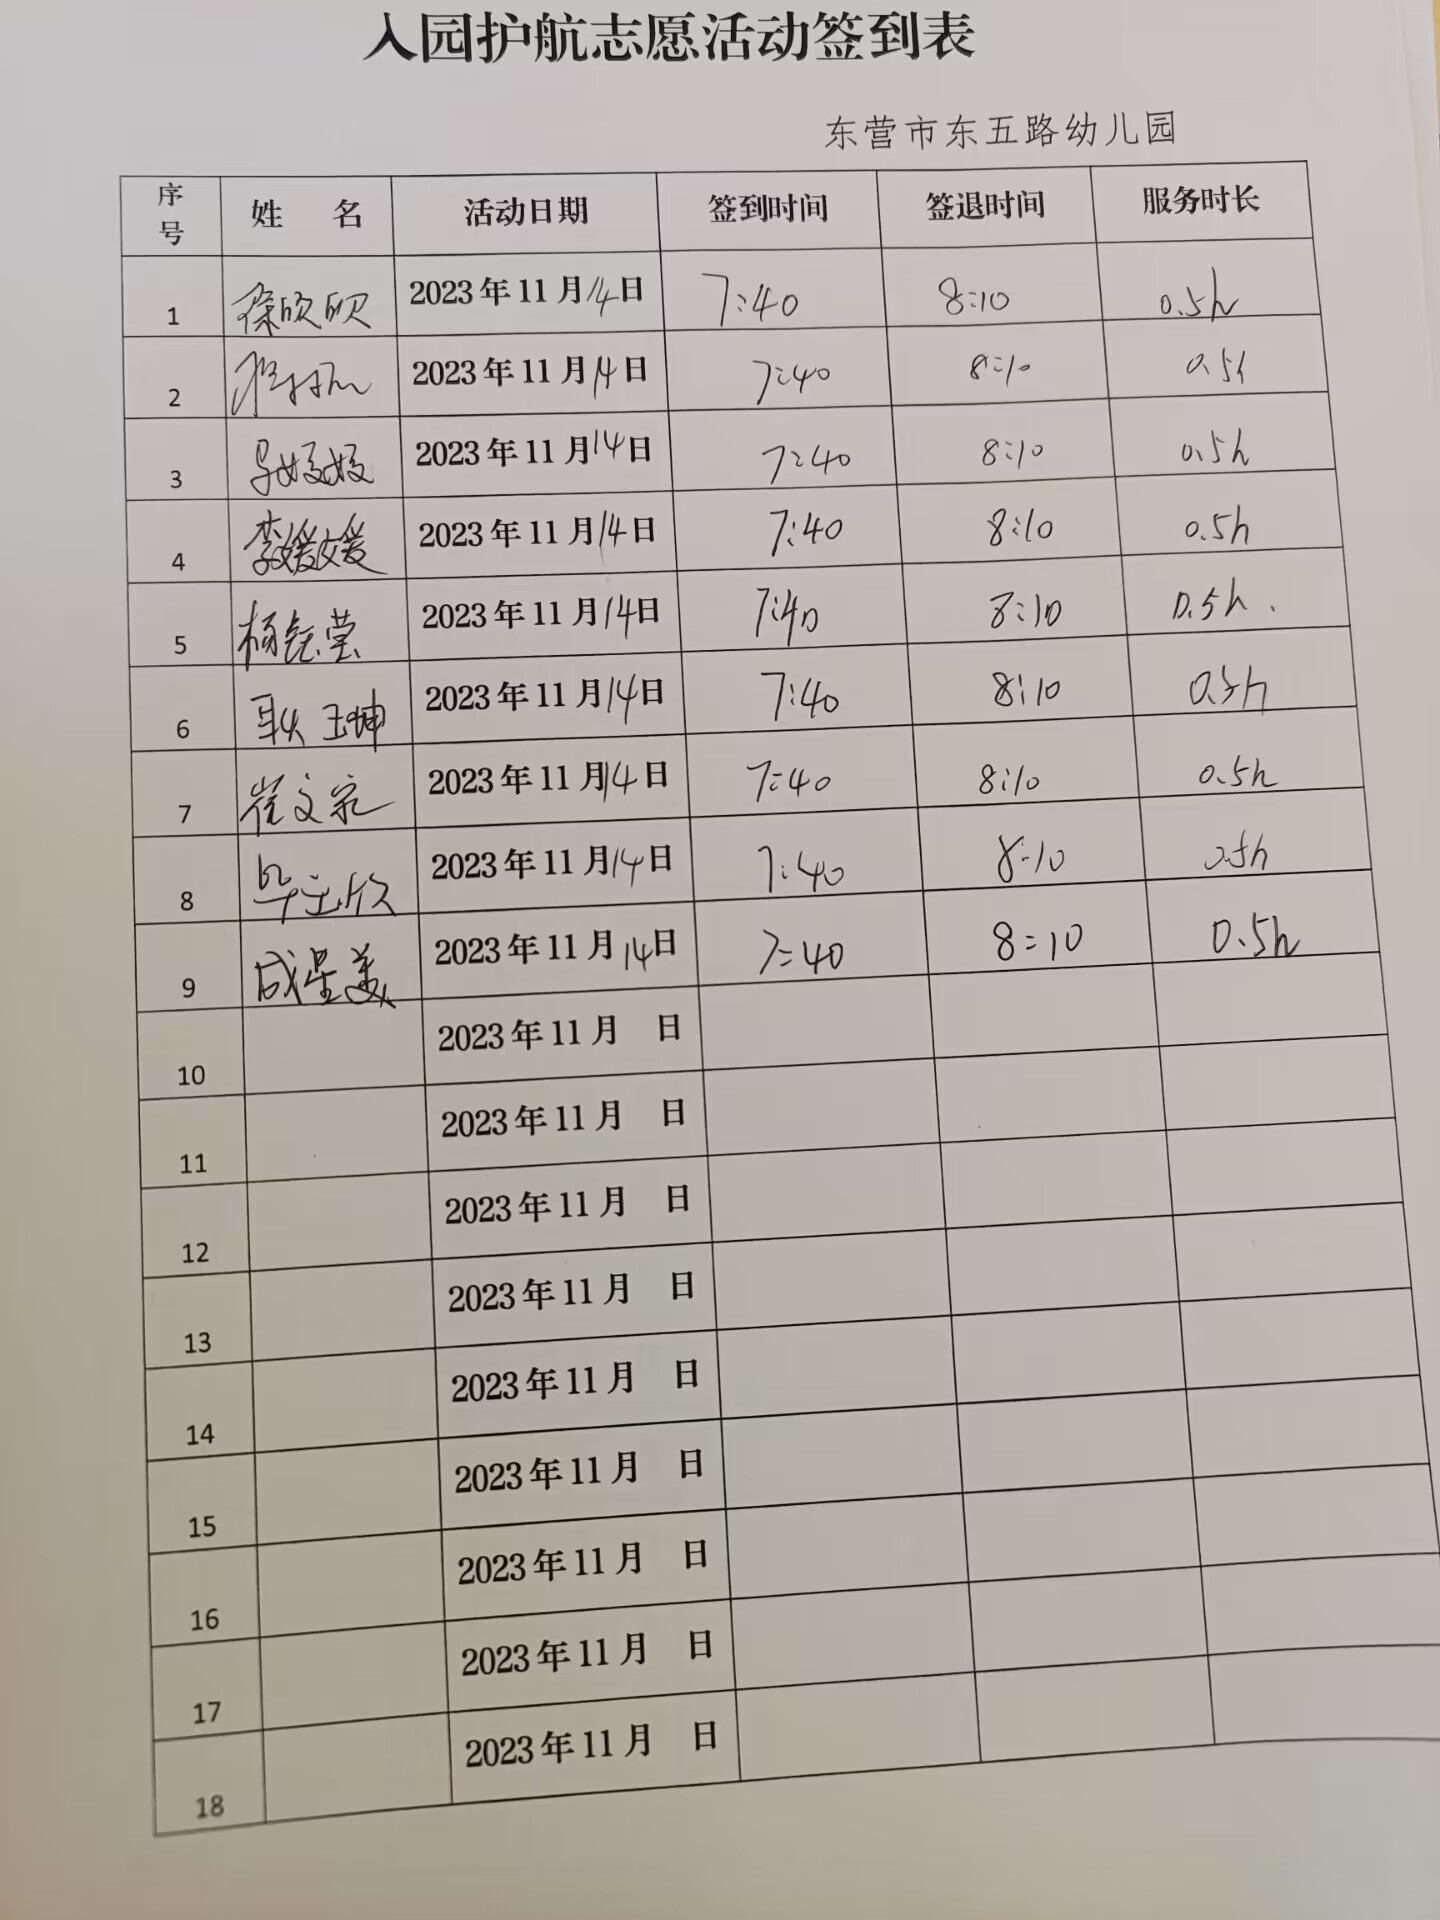 入园护航志愿活动签到表
东营市东五路幼儿园
序号 姓 名 活动日期 签到时间 签退时间 服务时长
1 徐欣欣 2023年11月14日 7:40 8:10 0.5h
2 2023年11月14日 7:40 8:10 0.5h
3 2023年11月14日 7:40 8:10 0.5h
4 李媛媛 2023年11月14日 7:40 8:10 0.5h
5 杨钰莹 2023年11月14日 7:40 8:10 0.5h.
6 耿玉坤 2023年11月14日 7:40 8:10 0.5h
7 崔文宗 2023年11月14日 7:40 8:10 0.5h
8 2023年11月14日 7:40 8:10 0.5h
9 成星美 2023年11月14日 7:40 8:10 0.5h
10 2023年11月 日
11 2023年11月 日
12 2023年11月 日
13 2023年11月 日
14 2023年11月 日
15 2023年11月 日
16 2023年11月 日
17 2023年11月 日
18 2023年11月 日